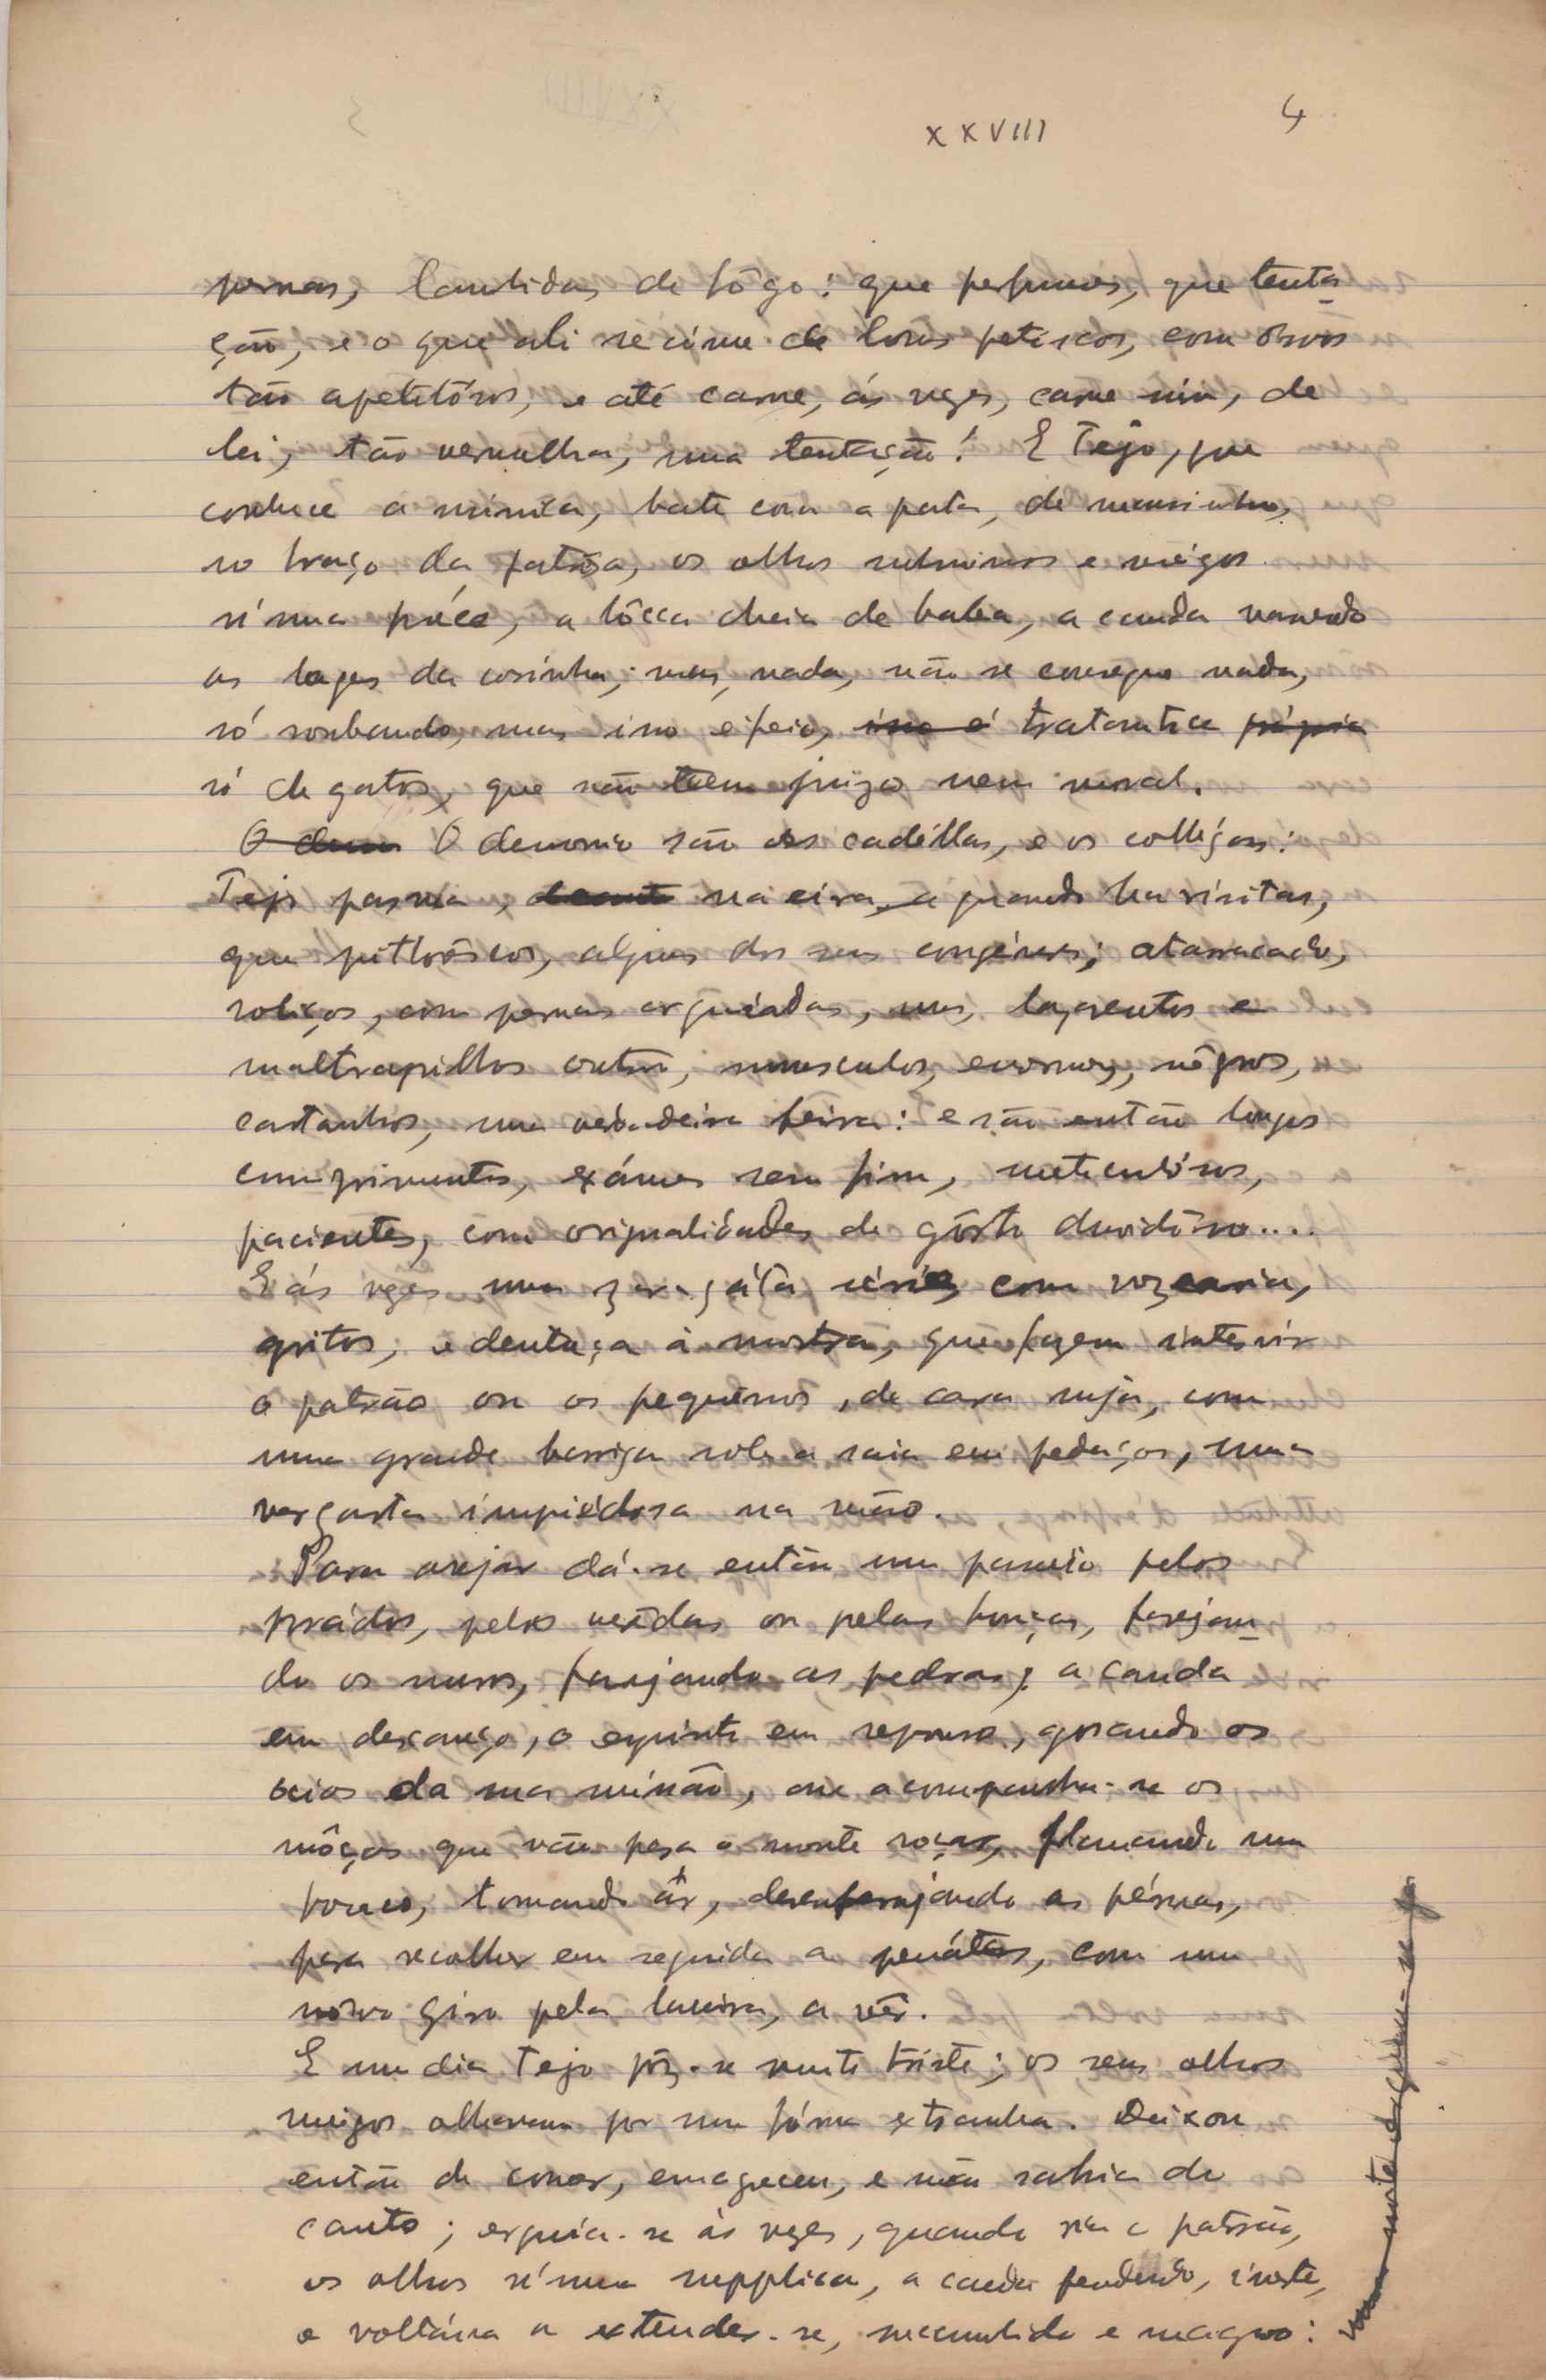 XXVIII 4
pernas, lambidas de fôgo: que perfumes, que tenta
ção, e o que ali se cóme de bons petiscos, com ossos
tão apetitósos, e até carne, ás vezes, carne sim, de
lei, tão vermelha, uma tentação! E Tejo, que
conhece a mimica, bate com a pata, de mansinho,
no braço da patrôa, os olhos submissos e meigos
n'uma préce, a bôcca cheia de baba, a cauda varrendo
as lages da cosinha; mas, nada, não se consegue nada,
só roubando, mas isso é feio, isso é tratantice própria
só de gatos, que não teem juizo nem moral.
O dem O demonio são as cadéllas, e os collégas:
Tejo pasma, na eira, quando ha visitas,
que pittorêscos, alguns dos seus congéneres; atarracados,
roliços, com pernas arqueádas, uns, lazarentos e
maltrapilhos outros, musculos, enormes, nêgros,
castanhos, uma verdadeira feira: e são então longos
comprimentos, exámes sem fim, meticulósos,
pacientes, com originalidades de gôsto duvidôso....
E ás vezes uma zaragáta séria, com vozearia,
gritos, e dentuça á mostra, que fazem intervir
o patrão ou os pequenos, de cara suja, com
uma grande barriga sob a saia em pedaços, uma
vergasta impiedosa na mão.
Para arejar dá-se então um passeio pelos
prádos, pelas verêdas ou pelas bouças, farejan
do os muros, farejando as pedras; a cauda
em descanço, o espirito em repouso, gosando os
ocios da sua missão, ou acompanha-se os
môços que vão para o monte roçar, flanando um
pouco, tomando ar, desenferrujando as pérnas,
para recolher em seguida a penátes, com um
nôvo giro pela lareira, a vêr.
E um dia Tejo pôz-se muito triste; os seus olhos
meigos olhavam por uma fórma extranha. Deixou
então de comer, emagreceu, e não sahia do
canto; erguia-se ás vezes, quando via o patrão,
os olhos n'uma supplica, a cauda pendendo, inerte,
e voltáva a extender-se, succumbido e magro: